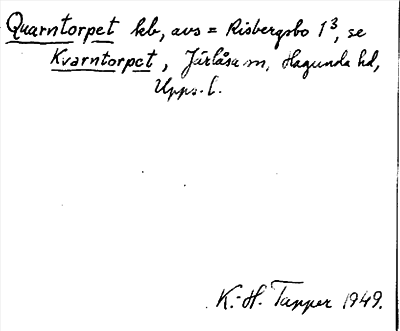 Quarntorpet kb, avs = Risbergsbo 1³, se
Kvarntorpet, Järlåsa sn, Hagunda hd,
Upps. l.
K.-H. Tapper 1949.